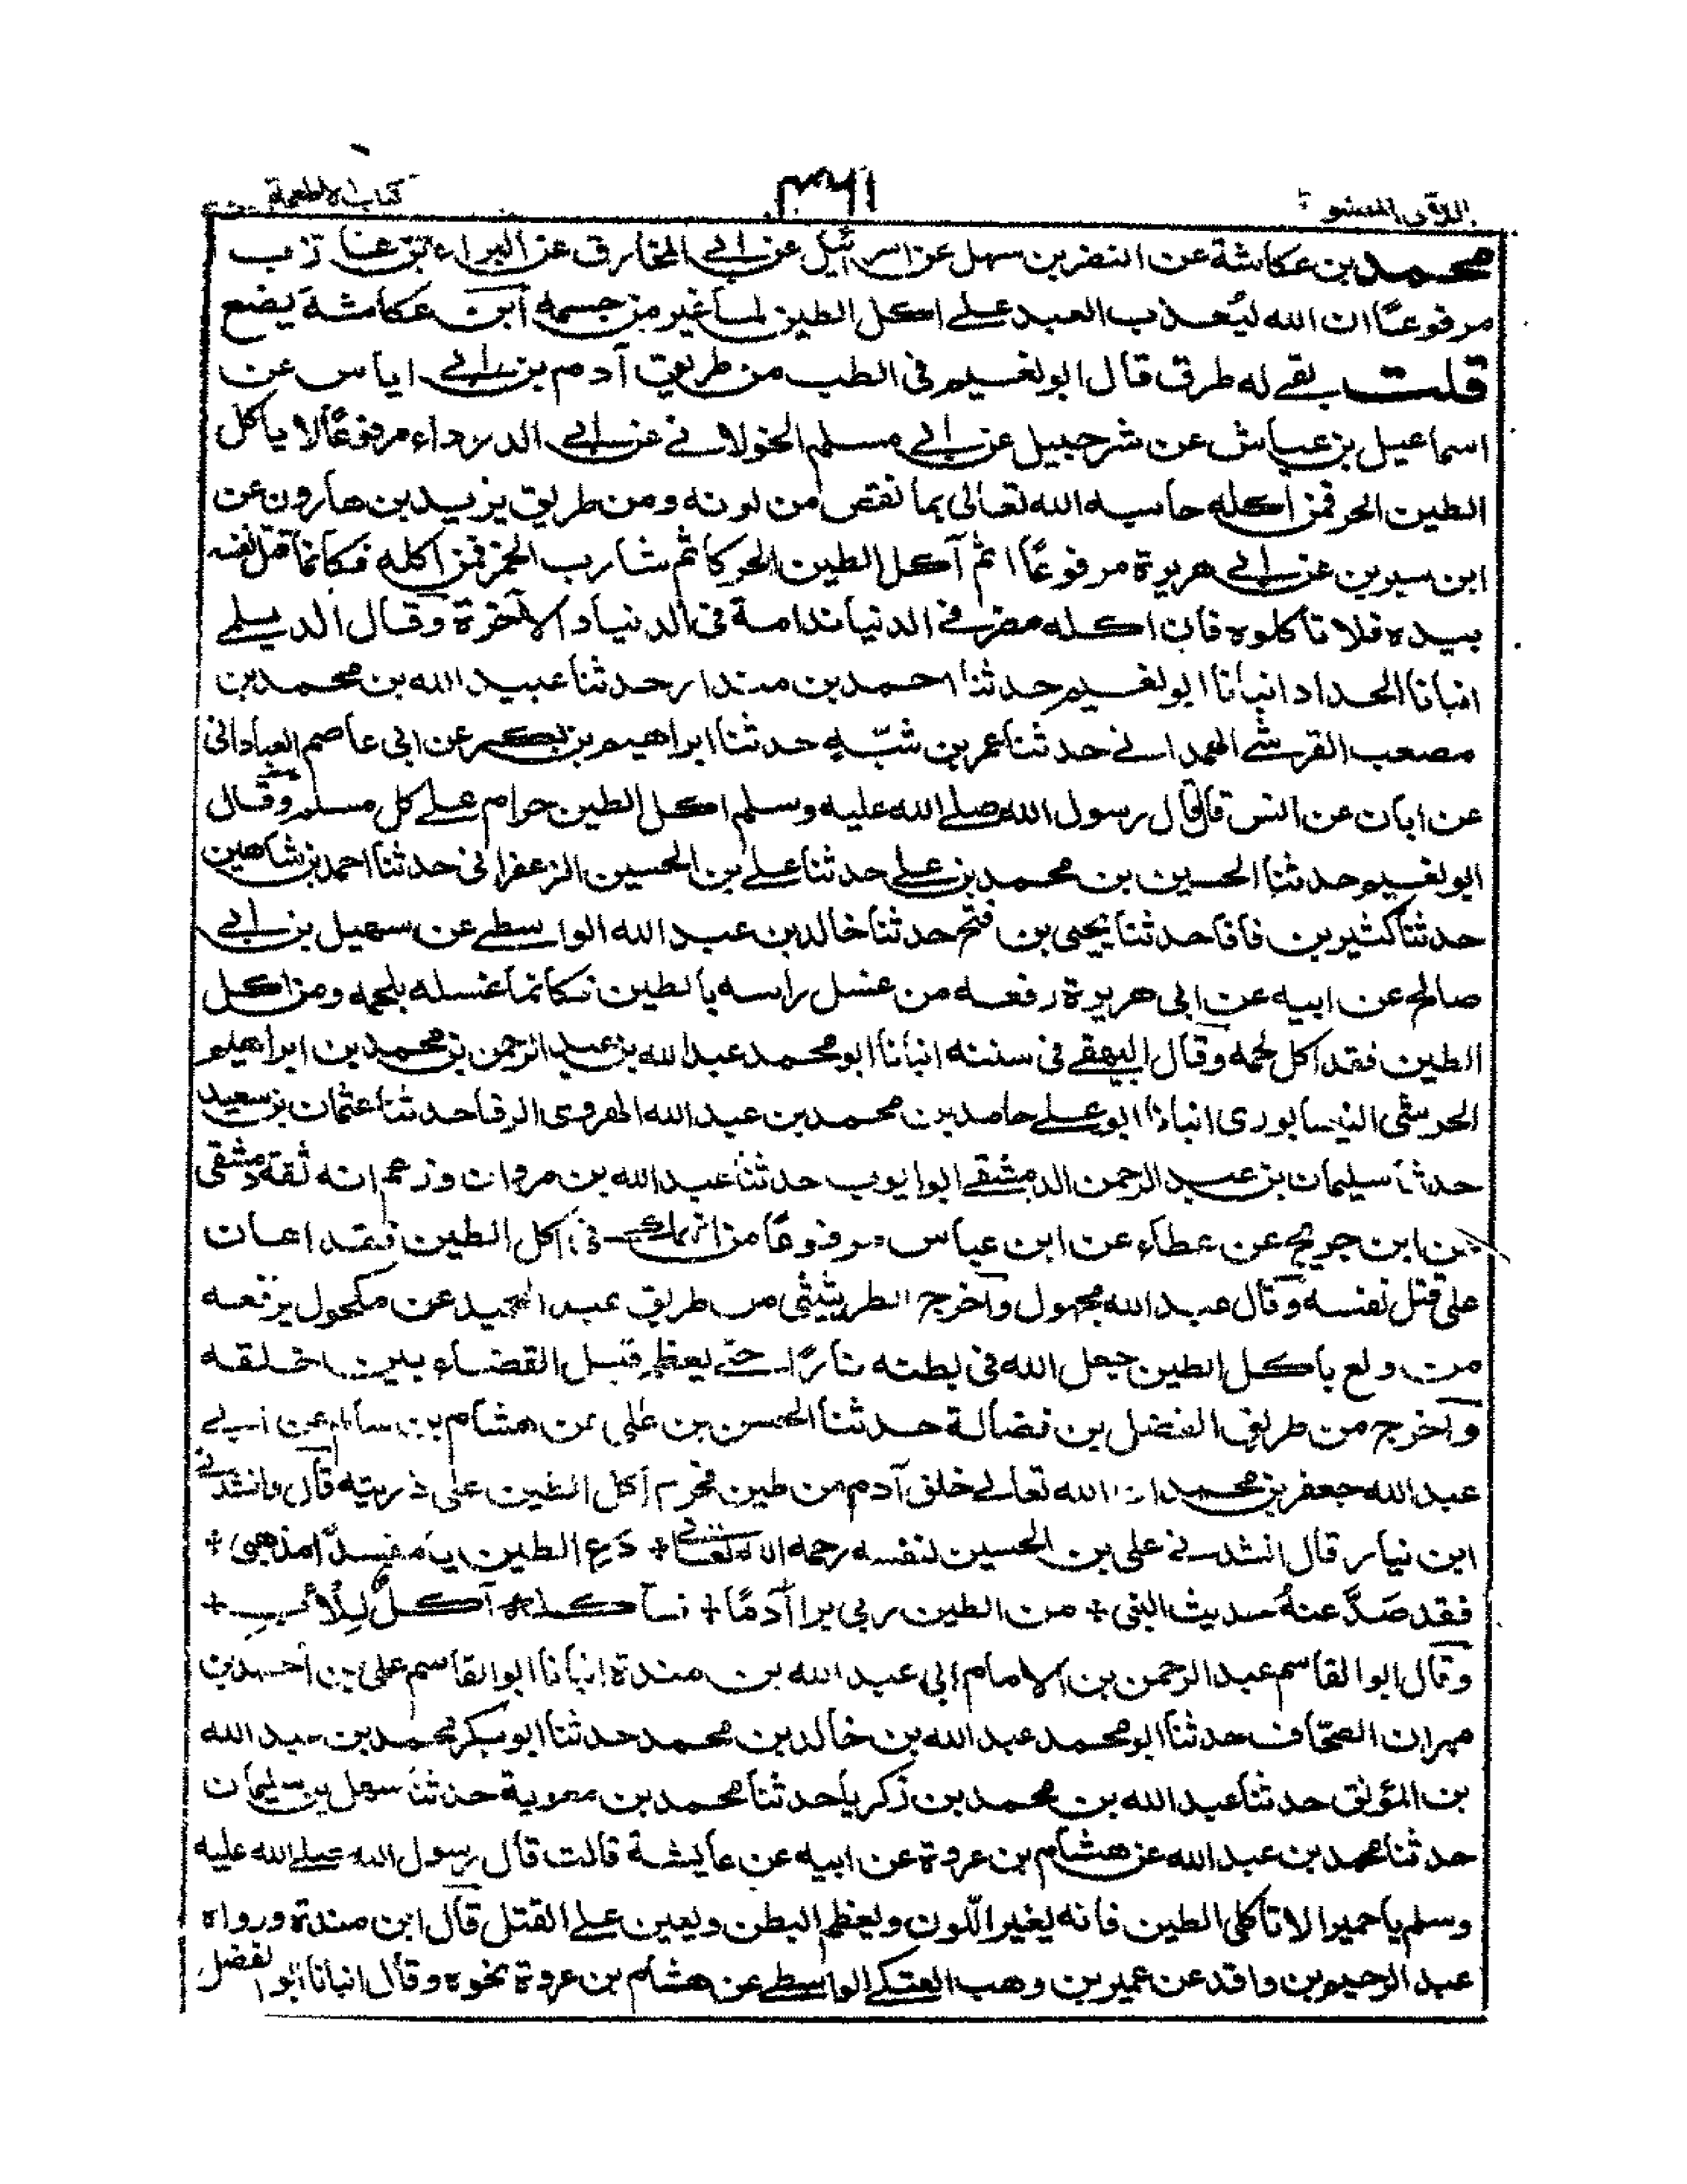 كتاب الاطعمة
محمد بن عكاشة عن النضر بن سهل عن اسرائيل عن ابي المخارق عن البراء بن عازب
مرفوعًا ان الله ليُعذب العبد على اكل الطين لما غير من جسمه ابن عكاشة يضع
قلت بقي له طرق قال ابو نعيم في الطب من طريق آدم بن ابي اياس عن
اسماعيل بن عياش عن شرحبيل عن ابي مسلم الخولاني عن ابي الدرداء مرفوعًا لا ياكل
الطين الحر فمن اكله حاسبه الله تعالى بما نقص من لونه ومن طريق يزيد بن هارون عن
ابن سيرين عن ابي هريرة مرفوعًا اثم آكل الطين الحر كاثم شارب الخمر فمن اكله فكانما قتل نفسه
بيده فلا تاكلوه فان اكله مضر في الدنيا ندامة في الدنيا و الآخرة وقال الديلمي
انبانا الحداد انبانا ابو نعيم حدثنا احمد بن مندار حدثنا عبيد الله بن محمد بن
مصعب القرشي الهمداني حدثنا عمر بن شبّه حدثنا ابراهيم بن بكر عن ابي عاصم العباداني
عن ابان عن انس قال قال رسول الله صلى الله عليه وسلم اكل الطين حرام على كل مسلم وقال
ابو نعيم حدثنا الحسين بن محمد بن علي حدثنا علي بن الحسين الزعفراني حدثنا احمد بن شاهين
حدثنا كثير بن فافا حدثنا يحيى بن فتح حدثنا خالد بن عبد الله الواسطي عن سهيل بن ابي
صالح عن ابيه عن ابي هريرة رفعه من غسل راسه بالطين فكانما غسله بلحمه ومن اكل
الطين فقد اكل لحمه وقال البيهقي في سننه انبانا ابو محمد عبد الله بن عبد الرحمن بن محمد بن ابراهيم
الحرشي النيسابوري انبانا ابو علي حامد بن محمد بن عبد الله الهروي الرفا حدثنا عثمان بن سعيد
حدثنا سليمان بن عبد الرحمن الدمشقي ابو ايوب حدثنا عبد الله بن مروان وزعم انه ثقة دمشقي
عن ابن جريج عن عطاء عن ابن عباس مرفوعًا من انهمك في اكل الطين فقد اعان
على قتل نفسه وقال عبد الله مجهول واخرج الطريثيثي من طريق عبد الحميد عن مكحول يرفعه
من ولع باكل الطين جعل الله في بطنه نارًا حتى يعظم قبل القضاء بين خلقه
واخرج من طريق الفضل بن فضالة حدثنا الحسن بن علي عن هشام بن سالم عن ابي
عبد الله جعفر بن محمد ان الله تعالى خلق آدم من طين فحرم اكل الطين على ذريته قال وانشدني
ابن نيار قال انشدني علي بن الحسين لنفسه رحمه الله تعالى + دَعِ الطين يا مفسدًا مذهبي +
فقد صَدَّ عنهُ حديث النبي + من الطين ربي برا آدمًا + آكلٌ لِلْأبِ +
وقال ابو القاسم عبد الرحمن بن الامام ابي عبد الله بن مندة انبانا ابو القاسم علي بن احمد بن
مهران الصحاف حدثنا ابو محمد عبد الله بن خالد بن محمد حدثنا ابو بكر محمد بن عبيد الله
بن المؤلق حدثنا عبد الله بن محمد بن زكريا حدثنا محمد بن معوية حدثنا سهل بن سليمان
حدثنا محمد بن عبد الله عن هشام بن عروة عن ابيه عن عايشة قالت قال رسول الله صلى الله عليه
وسلم يا حميرا لا تاكلي الطين فانه يغير اللّون ويعظم البطن ويعين على القتل قال ابن مندة ورواه
عبد الرحيم بن واقد عن عمير بن وهب العتكي الواسطي عن هشام بن عروة نحوه وقال انبانا ابو الفضل